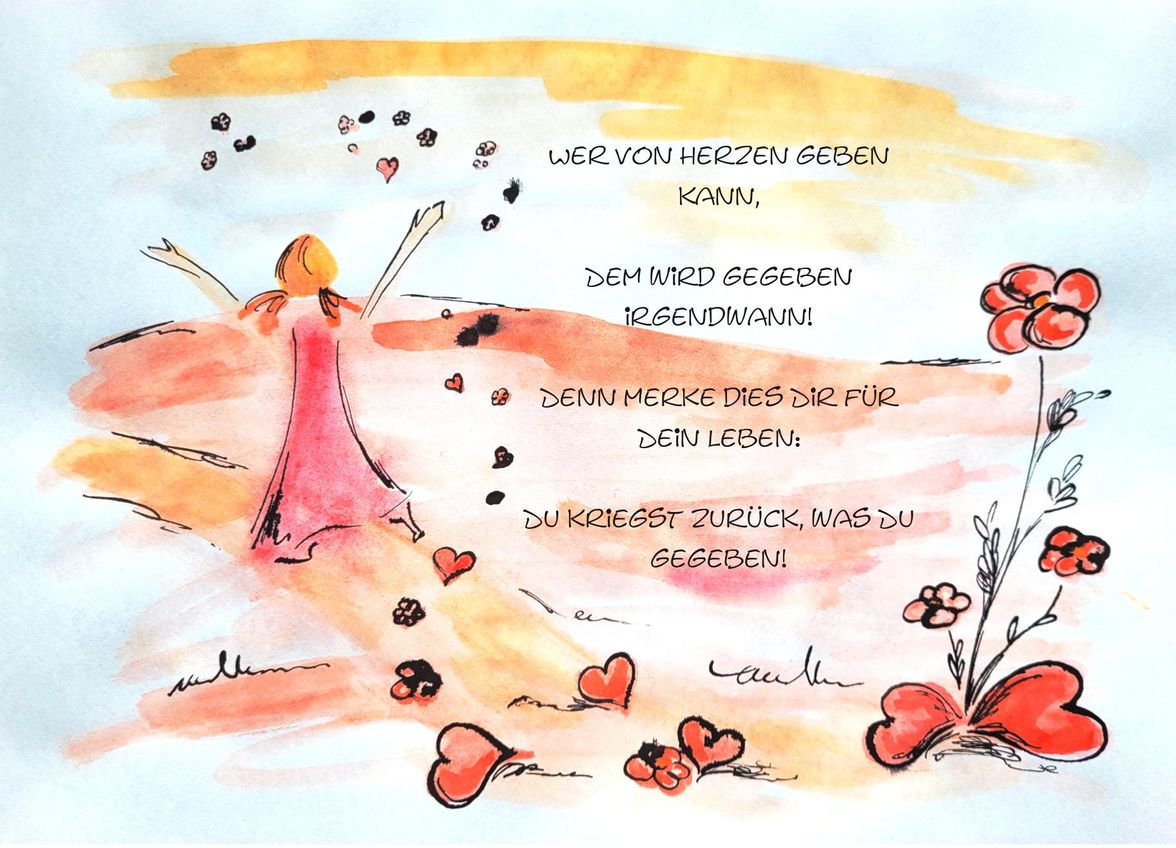 WER VON HERZEN GEBEN
KANN,
DEM WIRD GEGEBEN
IRGENDWANN!
DENN MERKE DIES DIR FÜR
DEIN LEBEN:
DU KRIEGST ZURÜCK, WAS DU
GEGEBEN!